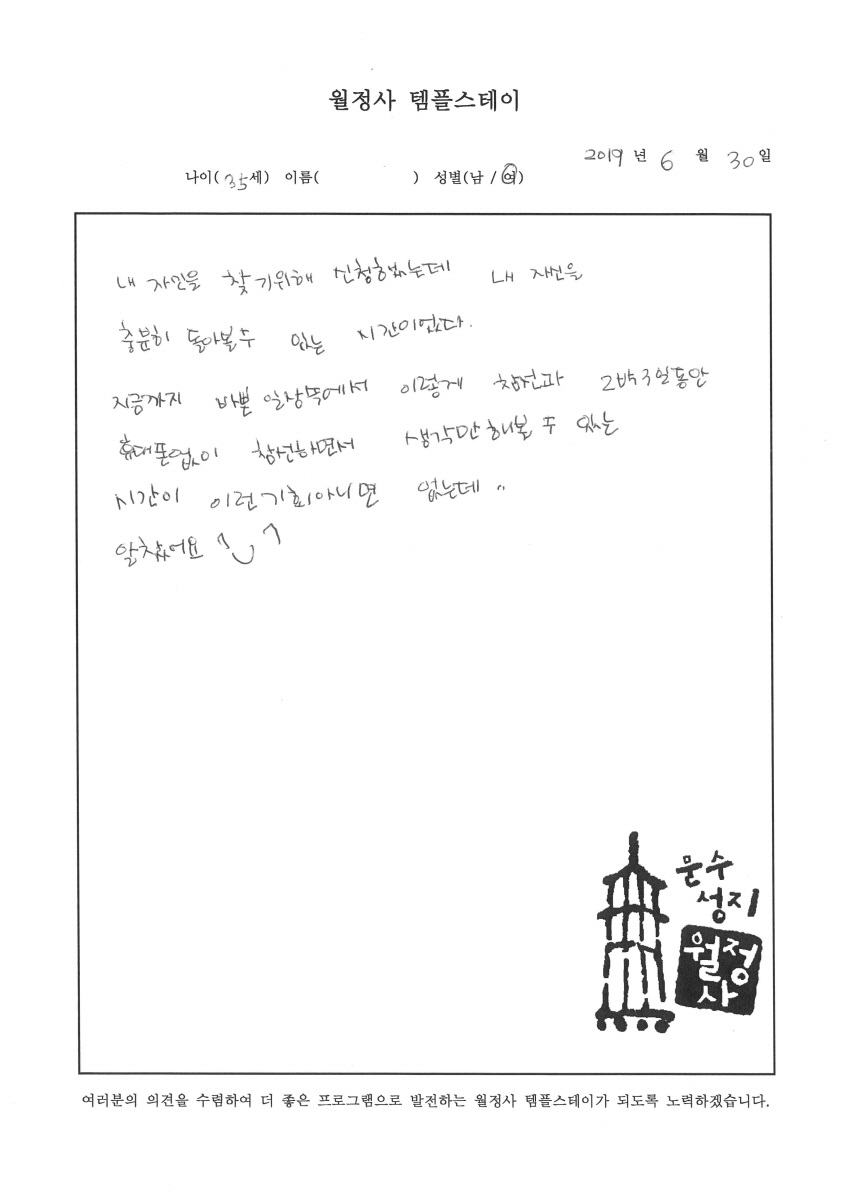 월정사 템플스테이
2019 년 6 월 30 일
나이( 35 세) 이름( ) 성별(남 / 여)
내 자신을 찾기위해 신청했는데 내 자신을
충분히 돌아볼수 있는 시간이었다.
지금까지 바쁜 일상속에서 이렇게 참선과 2박3일동안
휴대폰없이 참선하면서 생각만 해볼 수 있는
시간이 이런기회아니면 없는데 ..
알찼어요 ^‿^
문수
성지
월정
사
여러분의 의견을 수렴하여 더 좋은 프로그램으로 발전하는 월정사 템플스테이가 되도록 노력하겠습니다.